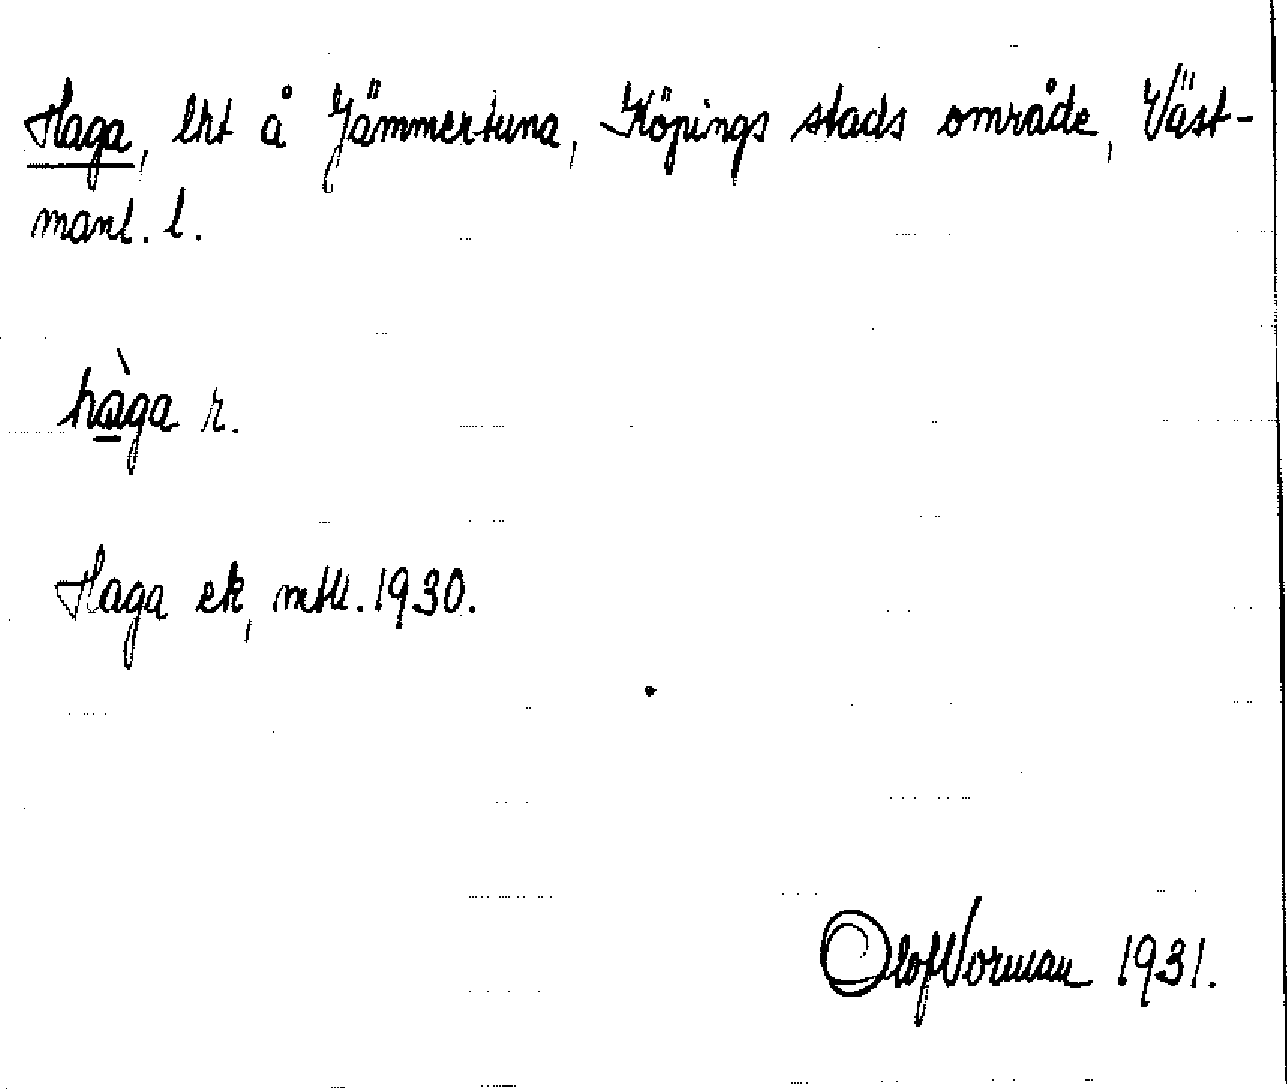 Haga, lht å Jämmertuna, Köpings stads område, Väst-
manl. l.
hàga r.
Haga ek, mtl. 1930.
Olof Norman 1931.